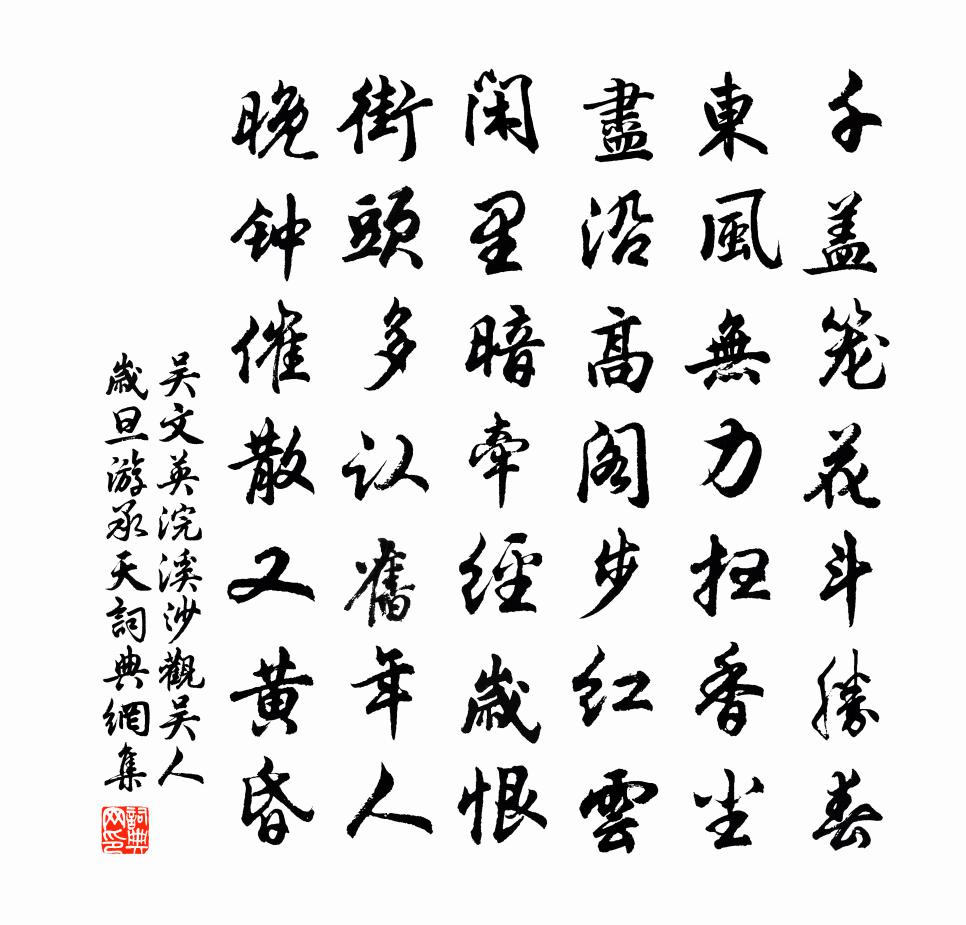 千盖笼花斗勝春
東風無力扫香尘
盡沿高阁步红雲
闲里暗牵经歲恨
街頭多认舊年人
晚钟催散又黄昏
吴文英浣溪沙觀吴人
歲旦游承天詞典網集
詞典网印